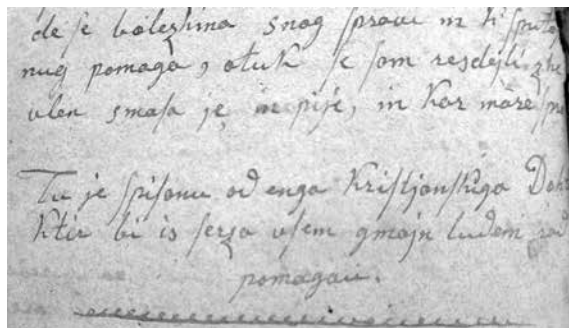 de se bolezhina snog spravi in k' sputoj
nuj pomaga, aluk se som resdejli
vlen smasa je in pije, in kar more
Tu je spisanu od enga Kristjanskiga Doh
ktir bi is serza usem gmajn ludem rad
pomagau.